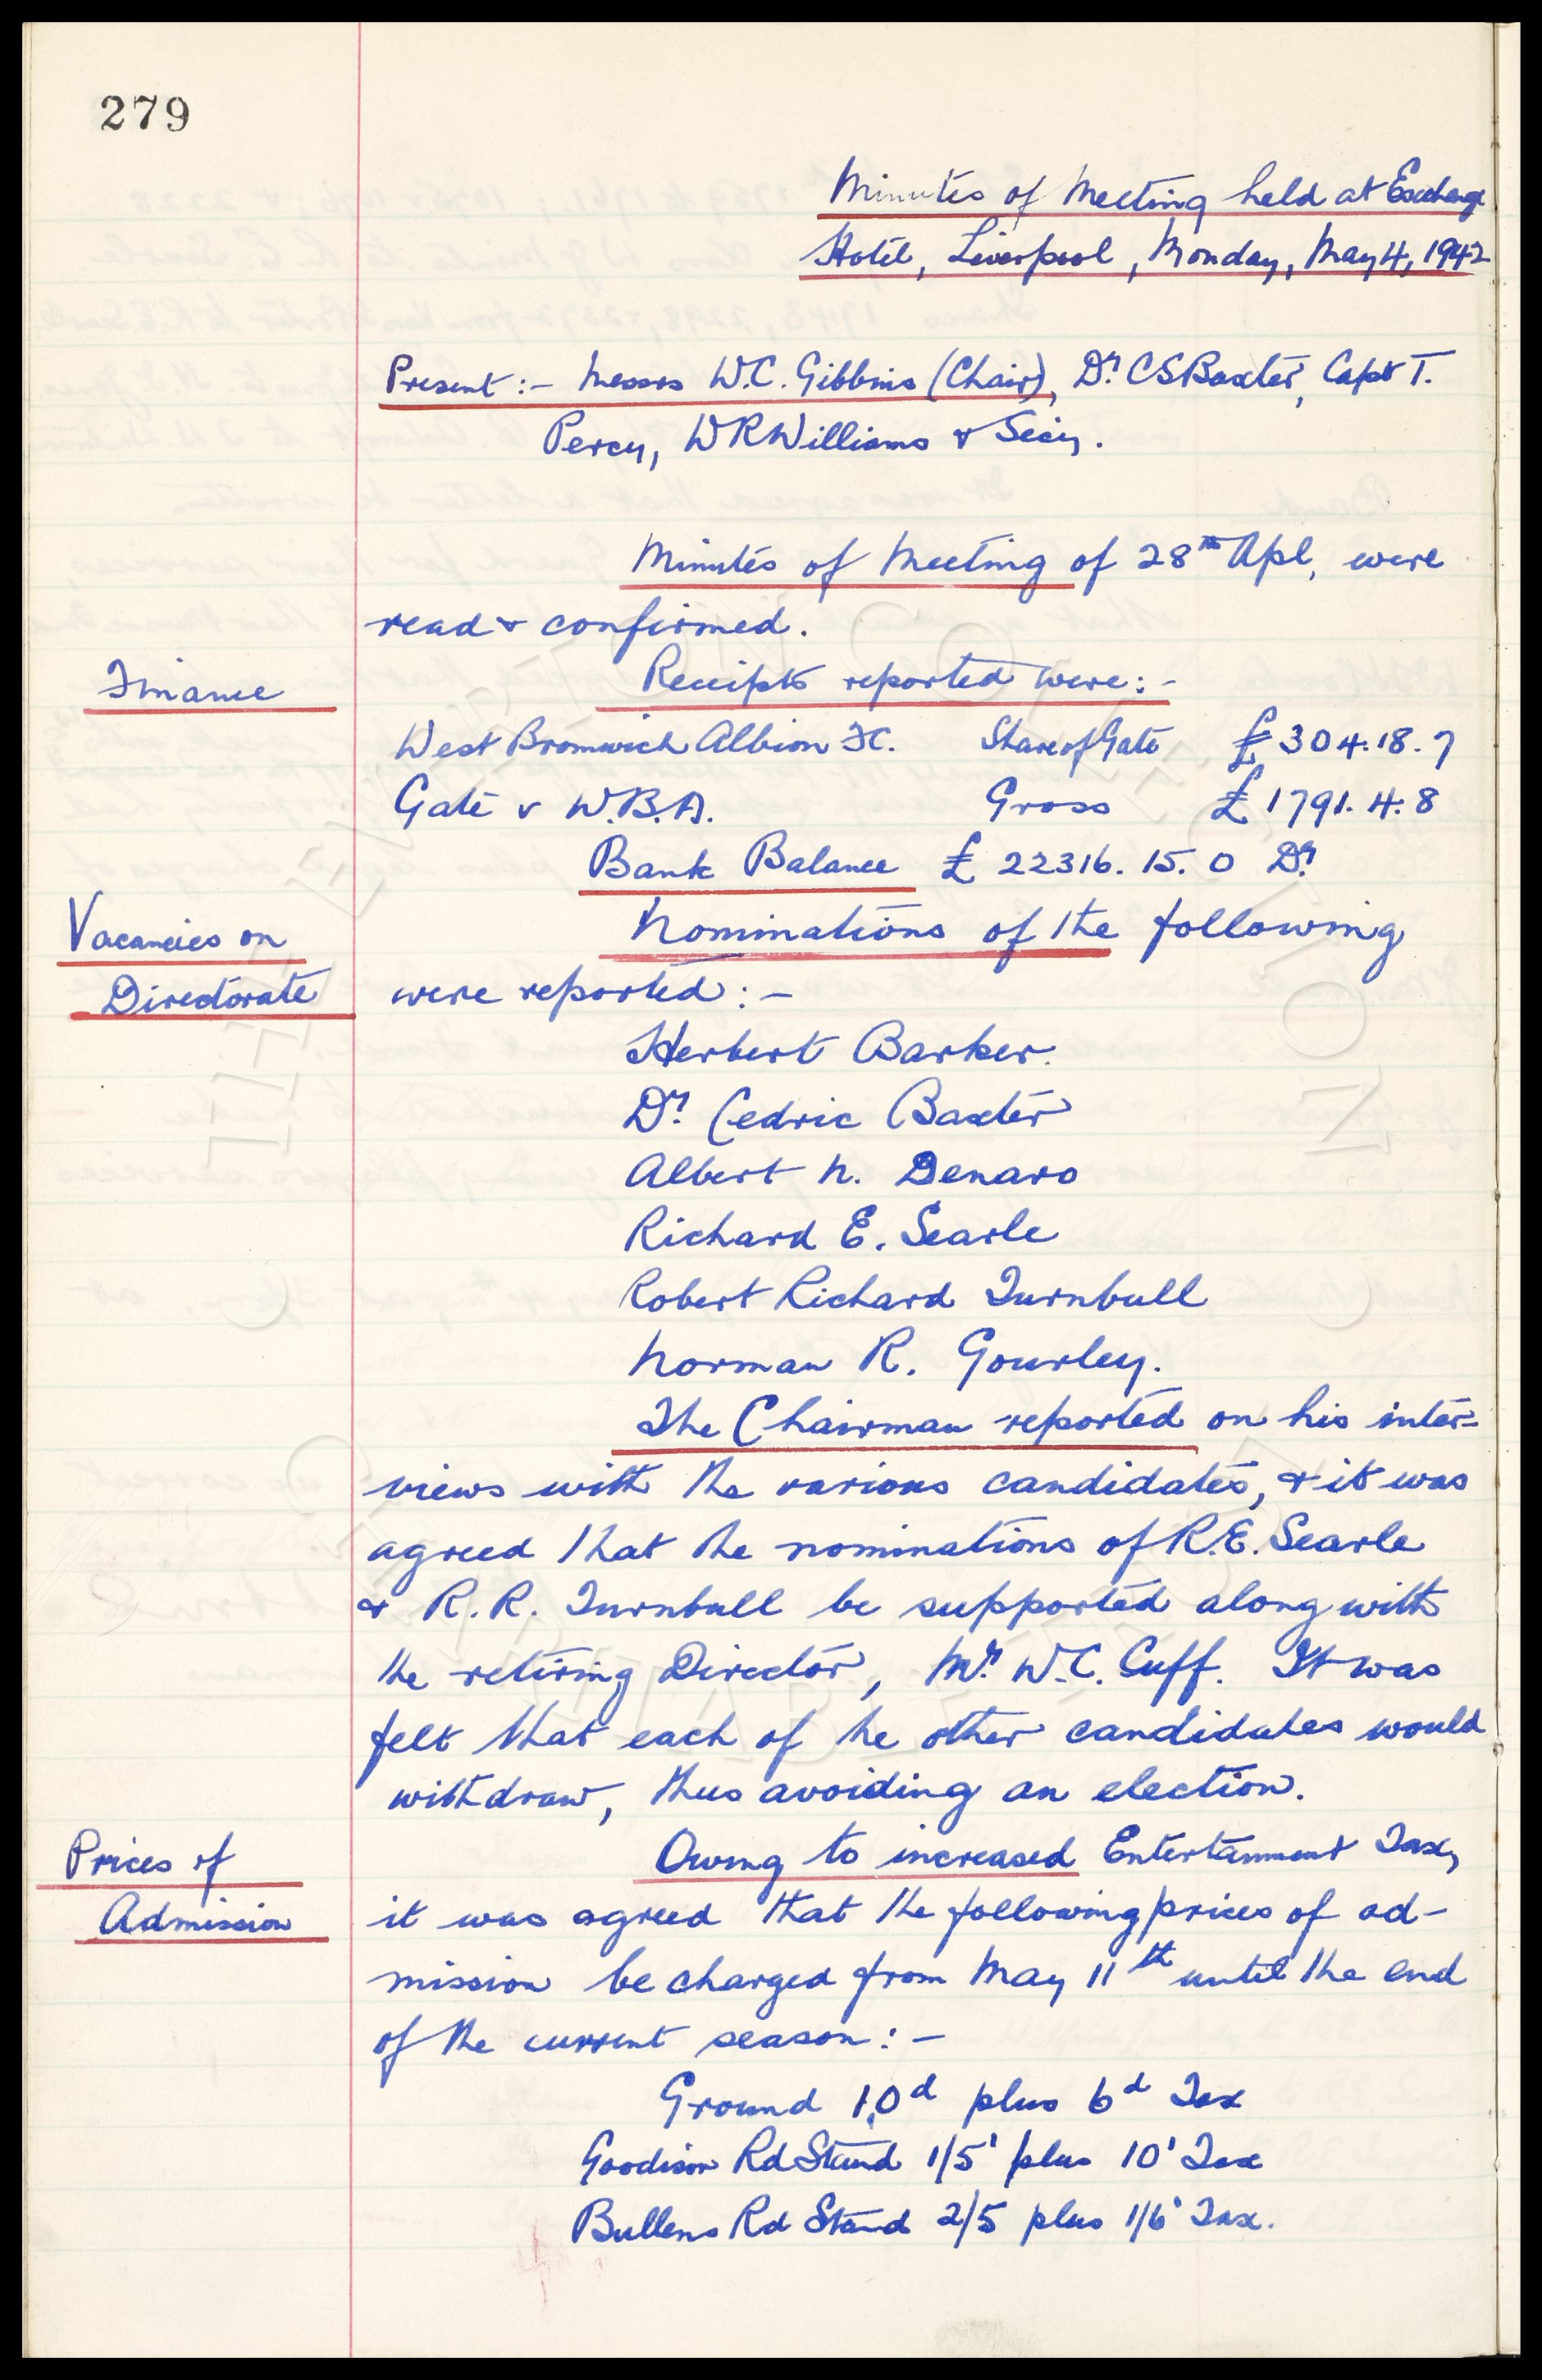 279
Minutes of Meeting held at Exchange
Hotel, Liverpool, Monday, May 4, 1942
Present :- Messrs W.C. Gibbins (Chair), Dr. CS Baxter, Capt T.
Percy, W R Williams & Secy.
Minutes of Meeting of 28th Apl, were
read & confirmed.
Finance
Receipts reported were:-
West Bromwich Albion FC. Share of Gate £304.18.7
Gate v W.B.A. Gross £1791.4.8
Bank Balance £22316.15.0 Dr.
Vacancies on
Directorate
Nominations of the following
were reported:-
Herbert Barker.
Dr. Cedric Baxter
Albert N. Denaro
Richard E. Searle
Robert Richard Turnbull
Norman R. Gourley.
The Chairman reported on his inter-
views with the various candidates, & it was
agreed that the nominations of R.E. Searle
& R.R. Turnbull be supported along with
the retiring Director, Mr. W.C. Cuff. It was
felt that each of he other candidates would
withdraw, thus avoiding an election.
Prices of
Admission
Owing to increased Entertainment Tax,
it was agreed that the following prices of ad-
mission be charged from May 11th until the end
of the current season:-
Ground 10d plus 6d Tax
Goodison Rd Stand 1/5' plus 10' Tax
Bullens Rd Stand 2/5 plus 1/6' Tax.